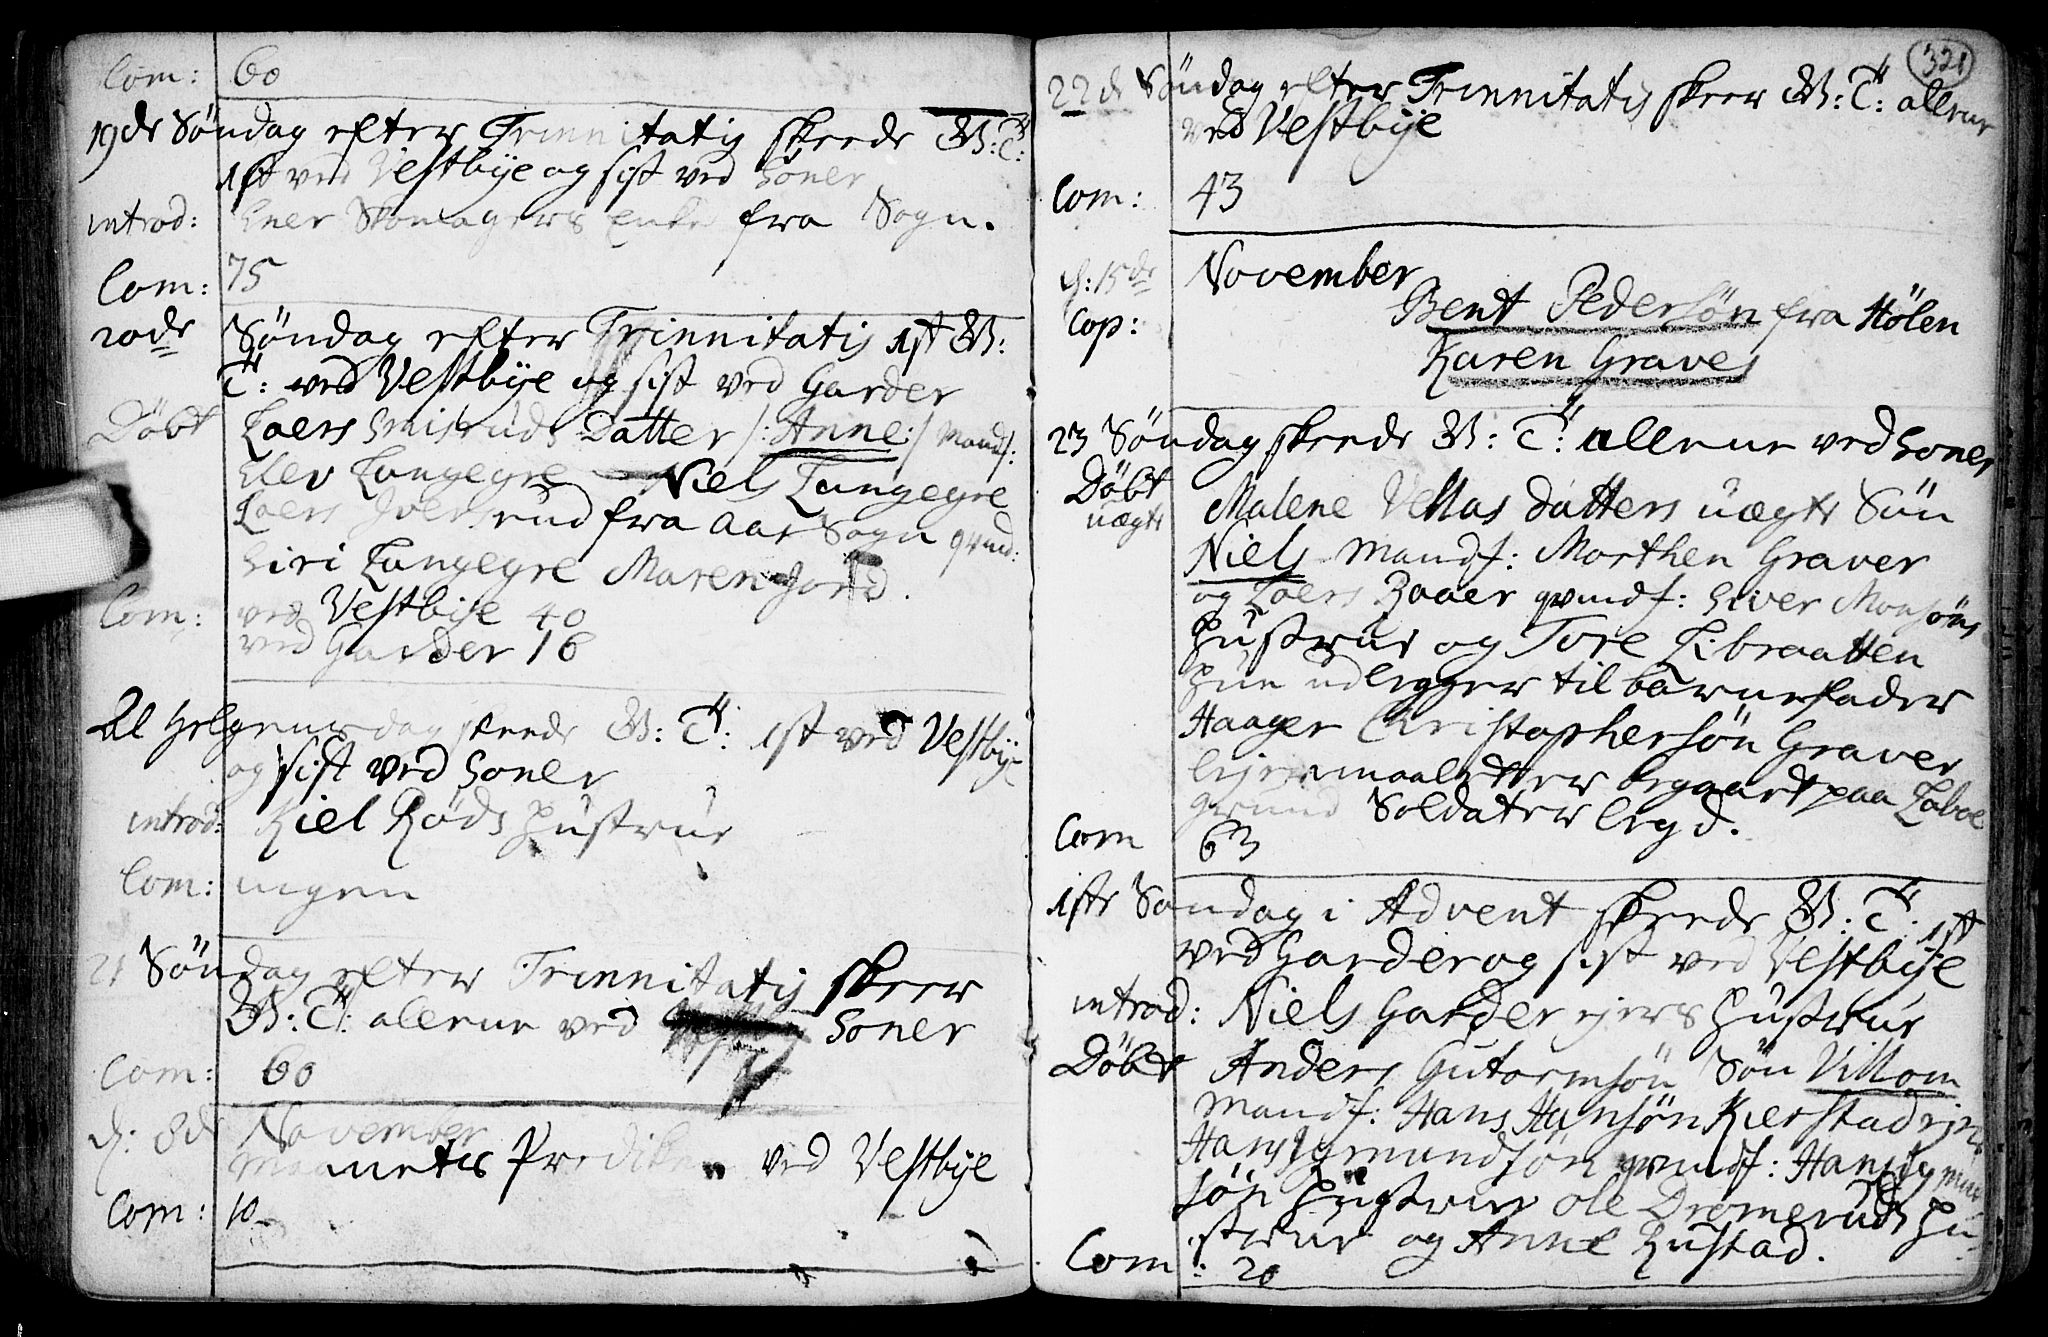 Com: 60
19de Söndag efter Trinnitatis skeede G: T:
1st ved Vestbye og sist ved Soner
introd: Ener Skomagers Enke fra Sogn.
Com: 75
20de Söndag efter Trinnitatis 1st G:
T: ved Vestbye og sist ved Garder
Döbt Laers Smisruds Datter /: Anne :/ Mandf:
Elev Langegre Niels Langegre
Laers Iversrud fra Aas Sogn qvindf:
Siri Langegre Maren Hord.
Com: ved Vestbye 40
ved Garder 16
Al Helgensdag skeede G: T: 1st ved Vestbye
og sist ved Soner
introd: Kiel Röds Hustrue
Com: ingen
21 Söndag efter Trinnitatis skeer
G: T: allene ved Soner
Com: 60
d: 8de November
Maanetes Prediken ved Vestbye
Com: 10
321
22de Söndag efter Trinnitatis skeer G: T: allene
ved Vestbye
Com: 43
d: 15de November
Cop: Bent Pedersön fra Hölen
Karen Graves
23 Söndag skeede G: T: allene ved Soner
Döbt Malene Vellas Datters uægte Sön
uægte
Niels Mandf: Morthen Graver
og Laers Raaer qvindf: Siver Monsöns
Hustrue og Tore K:braatten
Hun udlegger til barnefader
Haagen Christophersön Graver
Leiermaalet er begaaet paa Laboe
grund Soldater Leyd.
Com 63
1ste Söndag i Advent skeede G: T: 1st
ved Garder og sist ved Vestbye
introd: Niels Garder ejers Hustrue
Döbt Anders Gutormsön Sön Villom
Mandf: Hans Hansön Kierstad ejer
Hans Sygmundsön qvindf: Hans Sygmun
sön Hustrue Ole Dromeruds Hu
strue og Anne Rustad.
Com: 20